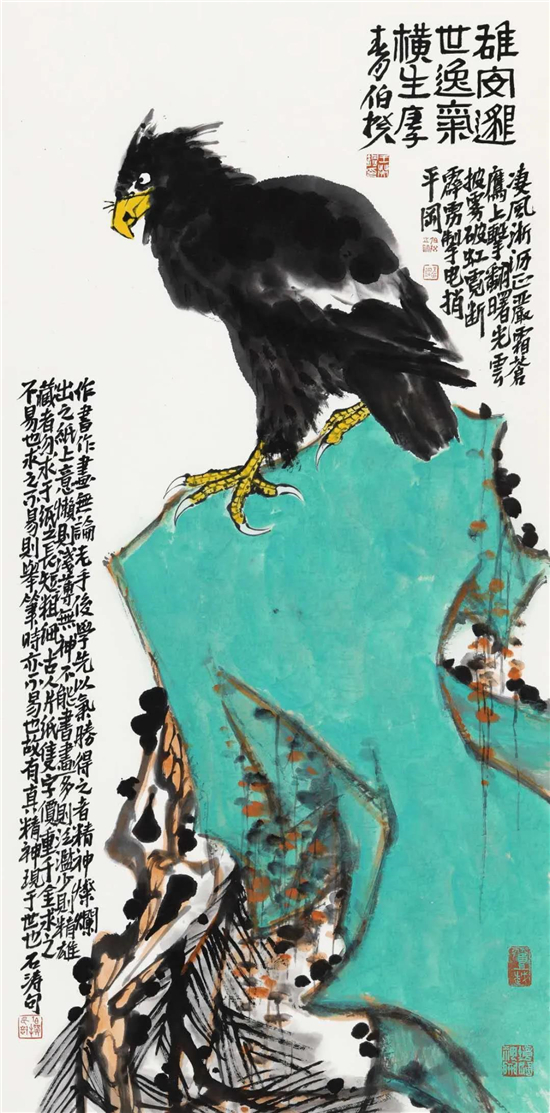 雄姿邈
世逸氣
橫生摩
青伯揆
凄風淅沥正嚴霜蒼
鷹上擊翻曙光雲
披霧破虹霓斷
霹雳掣电捎
平岡
作書作畫無論老手後學先以氣勝得之者精神燦爛
出之紙上意懶則淺薄無神不能書畫多則泛濫少則精雄
藏者勿求于紙之長短粗細古人片紙隻字價重千金求之
不易也求之不易則舉筆時亦不易也故有真精神現于世也 石濤句